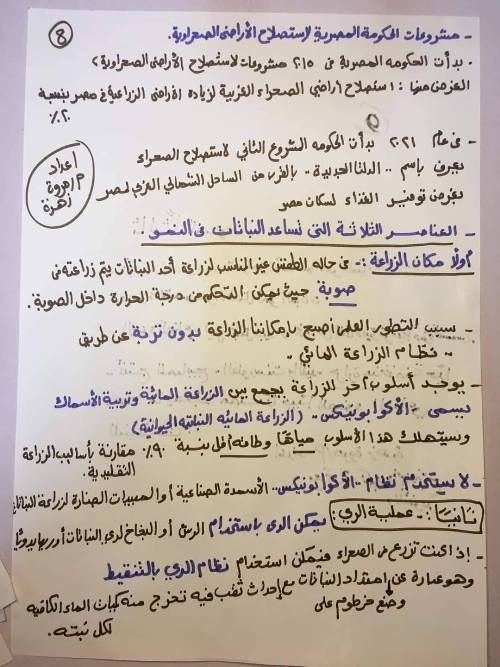 8
- مشروعات الحكومة المصرية لاستصلاح الأراضى الصحراوية.
. بدأت الحكومه المصرية فى ٢٠١٥ مشروعات لاستصلاح الأراضى الصحراوية
الغرض منها : استصلاح أراضي الصحراء الغربية لزيادة الأراضى الزراعية فى مصر بنسبة
٢٠٪
- فى عام ٢٠٢١ بدأت الحكومه المشروع الثانى لاستصلاح الصحراء
يعرف باسم .. الدلتا الجديدة .. بالقرب من الساحل الشمالى الغربى لمصر
بغرض توفير الغذاء لسكان مصر
أعداد
م/مروة
زهرة
- العناصر الثلاثة التى تساعد النباتات فى النمو
أولًا مكان الزراعة :- فى حاله الطقس غير المناسب لزراعة أحد النباتات يتم زراعته فى
صوبة حيث يمكن التحكم فى درجة الحرارة داخل الصوبة.
- بسبب التطور العلمى أصبح بإمكاننا الزراعة بدون تربة عن طريق
.. نظام الزراعة المائى ..
- يوجد أسلوب آخر للزراعة يجمع بين الزراعة المائية وتربية الأسماك
يسمى .. الأكوابونيكس .. (الزراعة المائيه النباتيه الحيوانية)
وسيتهلك هذا الأسلوب مياهًا وطاقه أقل بنسبة ٩٠٪ مقارنة بأساليب الزراعة
التقليدية.
- لا يستخدم نظام .. الأكوابونيكس .. الأسمدة الصناعية أو المبيدات الضارة لزراعة النباتات
ثانيًا :- عملية الرى : يمكن الرى باستخدام الرش أو البخاخ لرى النباتات أو ريها يدويًا
- إذا كنت تزرع فى الصحراء فيمكن استخدام نظام الرى بالتنقيط
وهو عبارة عن امتداد النباتات مع إحداث ثقب فيه تخرج منه كميات الماء الكافيه
وضع خرطوم على
لكل نبته.